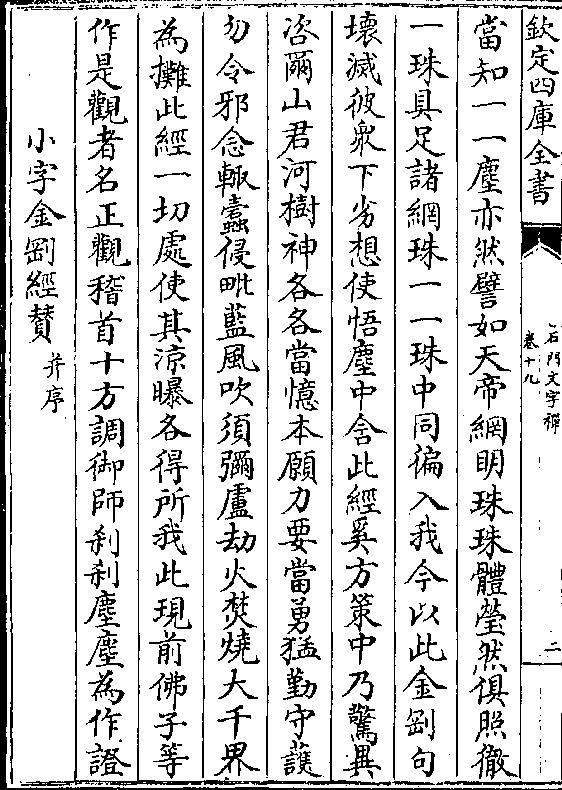 欽定四庫全書
石門文字禪
卷十九
二
當知一一塵亦然譬如天帝網明珠珠體瑩然俱照徹
一珠具足諸網珠一一珠中同徧入我今以此金剛句
壞滅彼衆下劣想使悟塵中含此經奚方策中乃驚異
咨爾山君河樹神各各當憶本願力要當勇猛勤守護
勿令邪念輙蠧侵毗藍風吹須彌盧劫火焚燒大千界
為攤此經一切處使其涼曝各得所我此現前佛子等
作是觀者名正觀稽首十方調御師刹刹塵塵為作證
小字金剛經賛并序